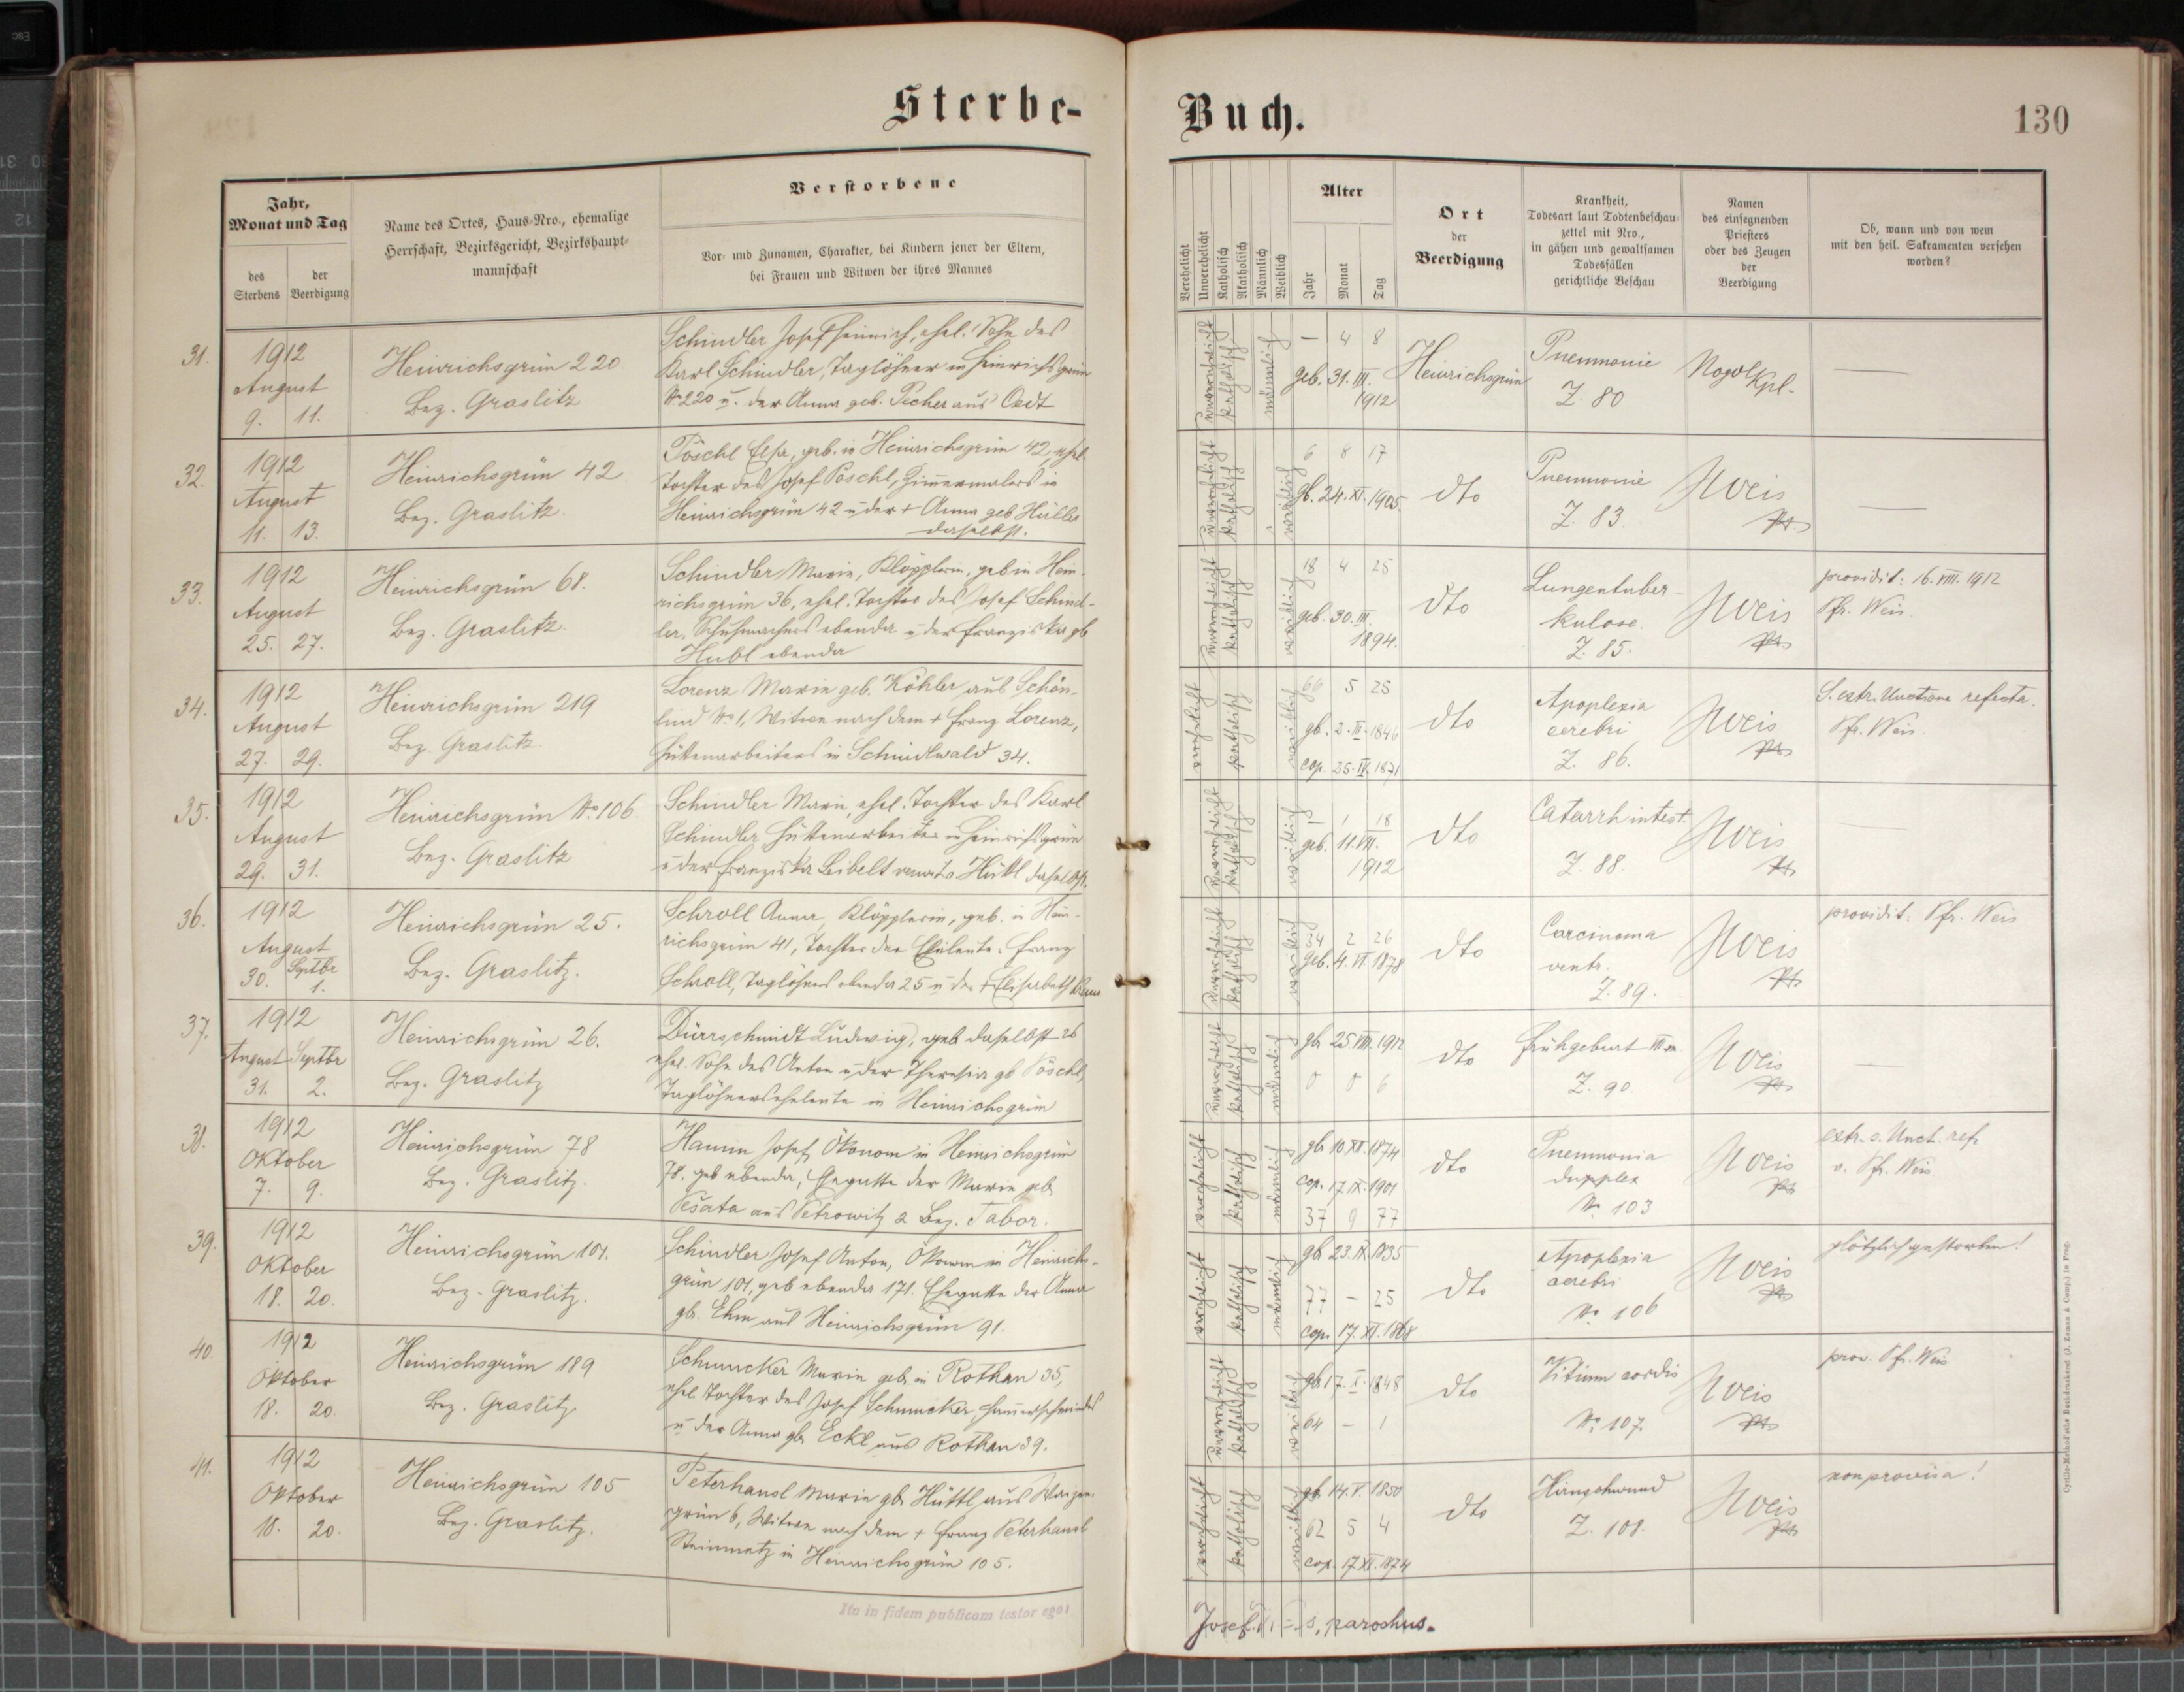 Sterbe-
Buch.
130
Jahr,
Monat und Tag
des
Sterbens
der
Beerdigung
Name des Ortes, Haus-Nro., ehemalige
Herrschaft, Bezirksgericht, Bezirkshaupt-
mannschaft
Verstorbene
Vor- und Zunamen, Charakter, bei Kindern jener der Eltern,
bei Frauen und Witwen der ihres Mannes
Verehelicht
Unverehelicht
Katholisch
Akatholisch
Männlich
Weiblich
Alter
Jahr
Monat
Tag
Ort
der
Beerdigung
Krankheit,
Todesart laut Todtenbeschau-
zettel mit Nro.,
in gähen und gewaltsamen
Todesfällen
gerichtliche Beschau
Namen
des einsegnenden
Priesters
oder des Zeugen
der
Beerdigung
Ob, wann und von wem
mit den heil. Sakramenten versehen
worden?
31.
1912
August
9. 11.
Heinrichsgrün 220
Bez. Graslitz
Schindler Josef Heinrich, ehel. Sohn des
Karl Schindler, Taglöhner in Heinrichsgrün
No 220 u. der Anna geb. Pecher aus Oedt
unverehelicht
katholisch
männlich
— 4 8
geb. 31. III.
1912
Heinrichsgrün
Pneumonie
Z. 80
Kpl.
32.
1912
August
11. 13.
Heinrichsgrün 42
Bez. Graslitz.
Pöschl Elsa, geb. in Heinrichsgrün 42, ehel.
Tochter des Josef Pöschl, Zimmermalers in
Heinrichsgrün 42 u der + Anna geb
daselbst.
unverehelicht
katholisch
weiblich
6 8 17
gb. 24. XI. 1905.
dto
Pneumonie
Z. 83.
Weis
33.
1912
August
25. 27.
Heinrichsgrün 68.
Bez. Graslitz.
Schindler Marie, Klöpplerin, geb in Hein-
richsgrün 36, ehel. Tochter des Josef Schind-
ler, Schuhmachers ebenda u der Franziska gb
Hubl ebenda
unverehelicht
katholisch
weiblich
18 4 25
geb. 30. III.
1894.
dto
Lungentuber-
kulose.
Z. 85.
Weis
providit: 16. VIII. 1912
Pfr. Weis.
34.
1912
August
27. 29.
Heinrichsgrün 219
Bez. Graslitz.
Lorenz Marie geb. Köhler aus Schön-
lind No 1, Witwe nach dem + Franz Lorenz,
Hüttenarbeiters in Schindlwald 34.
verehelicht
katholisch
weiblich
66 5 25
gb. 2. III. 1846
cop. 1871
dto
Apoplexia
cerebri
Z. 86.
Weis
S. extr. Unctione refecta.
Pfr. Weis.
35.
1912
August
29. 31.
Heinrichsgrün No. 106
Bez. Graslitz
Schindler Marie, ehel. Tochter des Karl
Schindler Hüttenarbeiter in Heinrichsgrün
u der Franziska Leibelt daselbst.
unverehelicht
katholisch
weiblich
— 1 18
geb. 11. VII.
1912
dto
Catarrh intest.
Z. 88.
Weis
36.
1912
August
30. Septbr
1.
Heinrichsgrün 25.
Bez. Graslitz.
Schroll Anna, Klöpplerin, geb. in Hein-
richsgrün 41, Tochter der Eheleute: Franz
Schroll, Taglöhners ebenda 25 u der + Elisabeth
unverehelicht
katholisch
weiblich
34 2 26
geb. 4. VI. 1878
dto
Carcinoma
ventr.
Z. 89.
Weis
providit: Pfr. Weis
37.
1912
August Septbr
31. 2.
Heinrichsgrün 26.
Bez. Graslitz
Dürrschmidt Ludwig, geb daselbst 26
ehel. Sohn des Anton u der Theresia gb Pöschl,
Taglöhnerseheleute in Heinrichsgrün
unverehelicht
katholisch
männlich
gb 25 VIII. 1912
0 0 6
dto
Frühgeburt
Z. 90
Weis
38.
1912
Oktober
7. 9.
Heinrichsgrün 78
Bez. Graslitz.
Josef, Ökonom in Heinrichsgrün
78. geb ebenda, Ehegatte der Marie geb
aus Petrowitz 2 Bez. Tabor.
verehelicht
katholisch
männlich
gb 10. XII. 1874
cop. 17. IX. 1901
37 9 77
dto
Pneumonia
dupplex
No. 103
Weis
extr. s. Unct. ref.
v. Pfr. Weis
39.
1912
Oktober
18. 20.
Heinrichsgrün 101.
Bez. Graslitz.
Schindler Josef Anton, Ökonom in Heinrichs-
grün 101, geb ebenda 171. Ehegatte der Anna
gb. Ehm aus Heinrichsgrün 91.
verehelicht
katholisch
männlich
gb 23. IX. 1835
77 — 25
cop. 17. XI. 1868
dto
Apoplexia
cerebri
No. 106
Weis
plötzlich gestorben!
40.
1912
Oktober
18. 20.
Heinrichsgrün 189
Bez. Graslitz
Schmucker Marie geb in Rothau 35,
ehel. Tochter des Josef Schmucker Hammerschmiedes
u der Anna gb Eckl aus Rothau 39.
unverehelicht
katholisch
weiblich
gb 17. X. 1848
64 — 1
dto
Vitium cordis
No. 107.
Weis
prov. Pfr. Weis
41.
1912
Oktober
18. 20.
Heinrichsgrün 105
Bez. Graslitz.
Peterhansl Marie gb Hüttl aus
grün 6, Witwe nach dem + Franz Peterhansl
Steinmetz in Heinrichsgrün 105.
verehelicht
katholisch
weiblich
gb. 14. V. 1850
62 5 4
cop. 17 XI. 1874
dto
Hirnschwund
Z. 108.
Weis
non provisa!
Ita in fidem publicam testor ego:
Josef parochus.